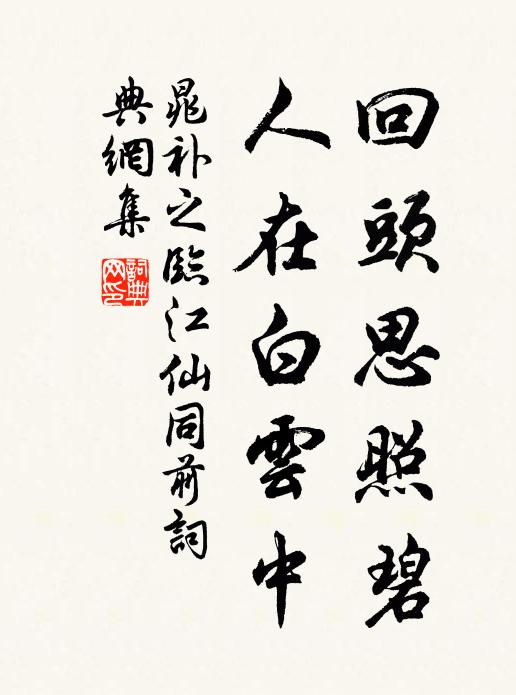 回頭思照碧
人在白雲中
晁補之臨江仙同前詞
典網集
詞典网印